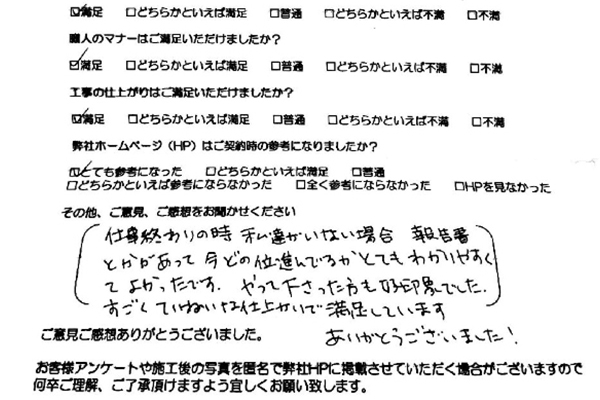 ☑満足 □どちらかといえば満足 □普通 □どちらかといえば不満 □不満
職人のマナーはご満足いただけましたか？
☑満足 □どちらかといえば満足 □普通 □どちらかといえば不満 □不満
工事の仕上がりはご満足いただけましたか？
☑満足 □どちらかといえば満足 □普通 □どちらかといえば不満 □不満
弊社ホームページ（HP）はご契約時の参考になりましたか？
☑とても参考になった □どちらかといえば満足 □普通
□どちらかといえば参考にならなかった □全く参考にならなかった □HPを見なかった
その他、ご意見、ご感想をお聞かせください
仕事終わりの時 私達がいない場合 報告書
とかがあって 今どの位進んでるか とても わかりやすく
て よかったです. やって下さった方も 好印象でした.
すごく ていねいな仕上がいで 満足しています
ご意見ご感想ありがとうございました。
ありがとうございました！
お客様アンケートや施工後の写真を匿名で弊社HPに掲載させていただく場合がございますので
何卒ご理解、ご了承頂けますよう宜しくお願い致します。